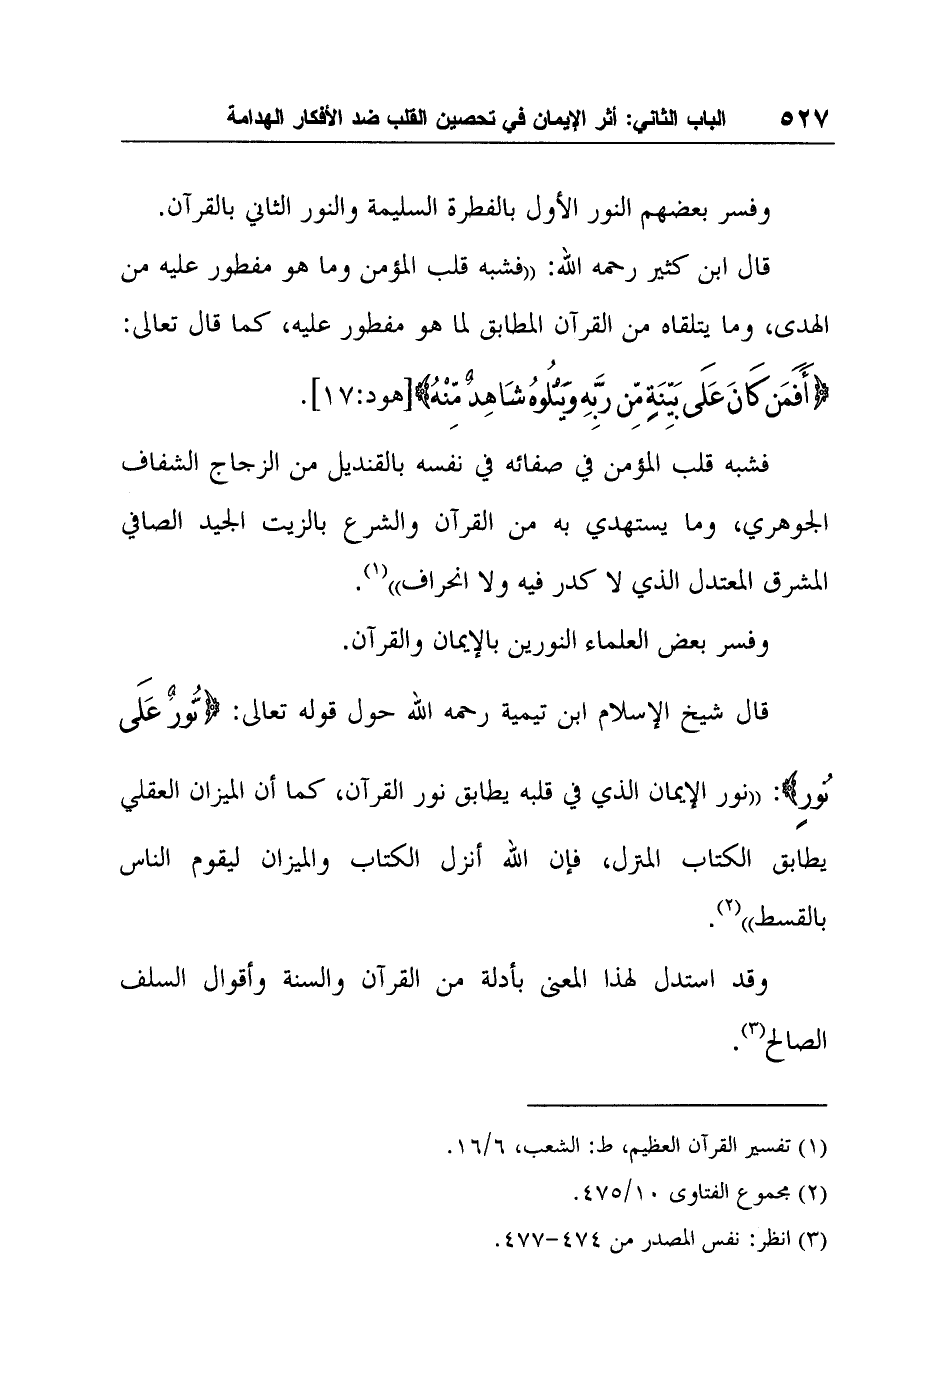 ٥٢٧ الباب الثاني: أثر الإيمان في تحصين القلب ضد الأفكار الهدامة
وفسر بعضهم النور الأول بالفطرة السليمة والنور الثاني بالقرآن.
قال ابن كثير رحمه الله: ((فشبه قلب المؤمن وما هو مفطور عليه من
الهدى، وما يتلقاه من القرآن المطابق لما هو مفطور عليه، كما قال تعالى:
﴿أَفَمَن كَانَ عَلَىٰ بَيِّنَةٍ مِّن رَّبِّهِ وَيَتْلُوهُ شَاهِدٌ مِّنْهُ﴾[هود:١٧].
فشبه قلب المؤمن في صفائه في نفسه بالقنديل من الزجاج الشفاف
الجوهري، وما يستهدي به من القرآن والشرع بالزيت الجيد الصافي
المشرق المعتدل الذي لا كدر فيه ولا انحراف))(١).
وفسر بعض العلماء النورين بالإيمان والقرآن.
قال شيخ الإسلام ابن تيمية رحمه الله حول قوله تعالى: ﴿نُّورٌ عَلَىٰ
نُورٍ﴾: ((نور الإيمان الذي في قلبه يطابق نور القرآن، كما أن الميزان العقلي
يطابق الكتاب المنزل، فإن الله أنزل الكتاب والميزان ليقوم الناس
بالقسط))(٢).
وقد استدل لهذا المعنى بأدلة من القرآن والسنة وأقوال السلف
الصالح(٣).
(١) تفسير القرآن العظيم، ط: الشعب، ١٦/٦.
(٢) مجموع الفتاوى ٤٧٥/١٠.
(٣) انظر: نفس المصدر من ٤٧٤-٤٧٧.